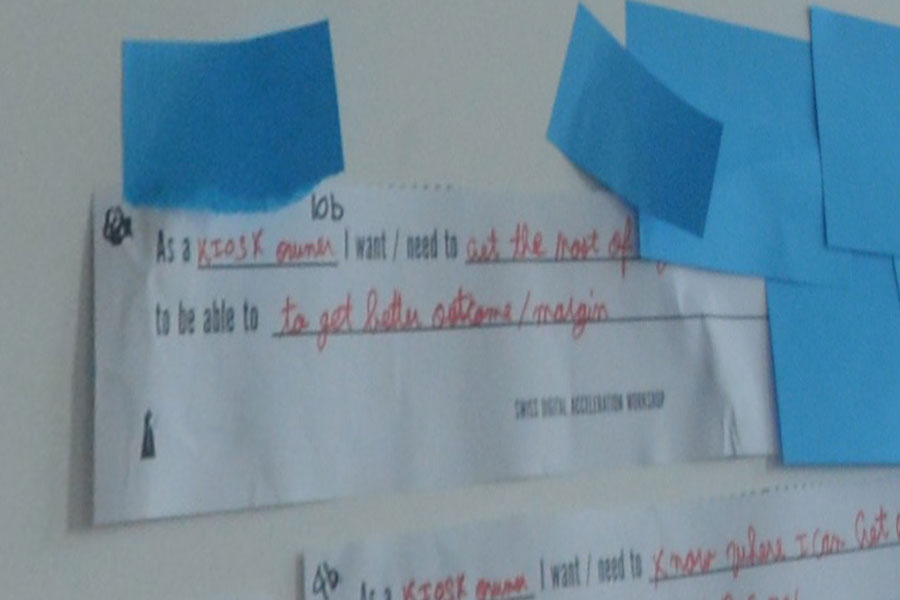 10b
As a KIOSK owner I want / need to get the most of
to be able to to get better outcome/margin
SWISS DIGITAL ACCELERATION WORKSHOP
9b
As a KIOSK owner I want / need to Know where I can Get